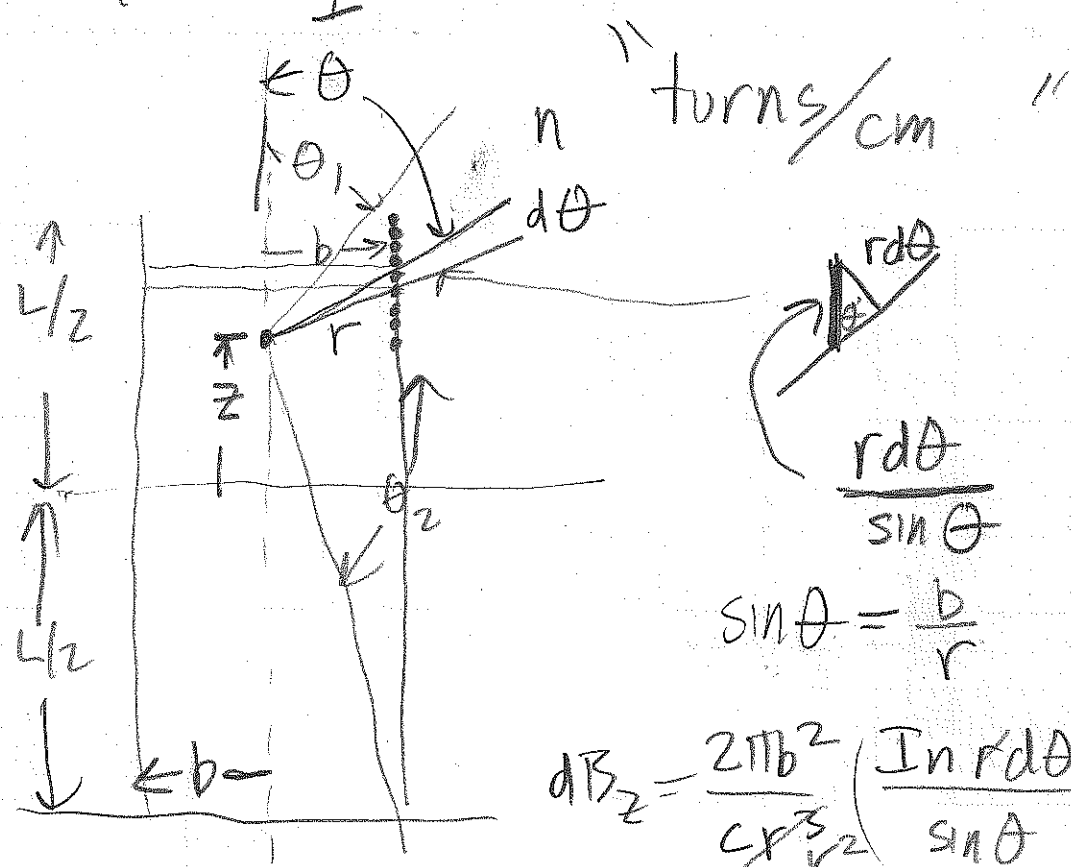 I
θ
"turns/cm"
θ₁
n
dθ
b
L/2
r
z
rdθ
θ
rdθ/sin θ
θ₂
sin θ = b/r
L/2
b
dB_z = 2πb²/cr³ r² (In rdθ/sin θ